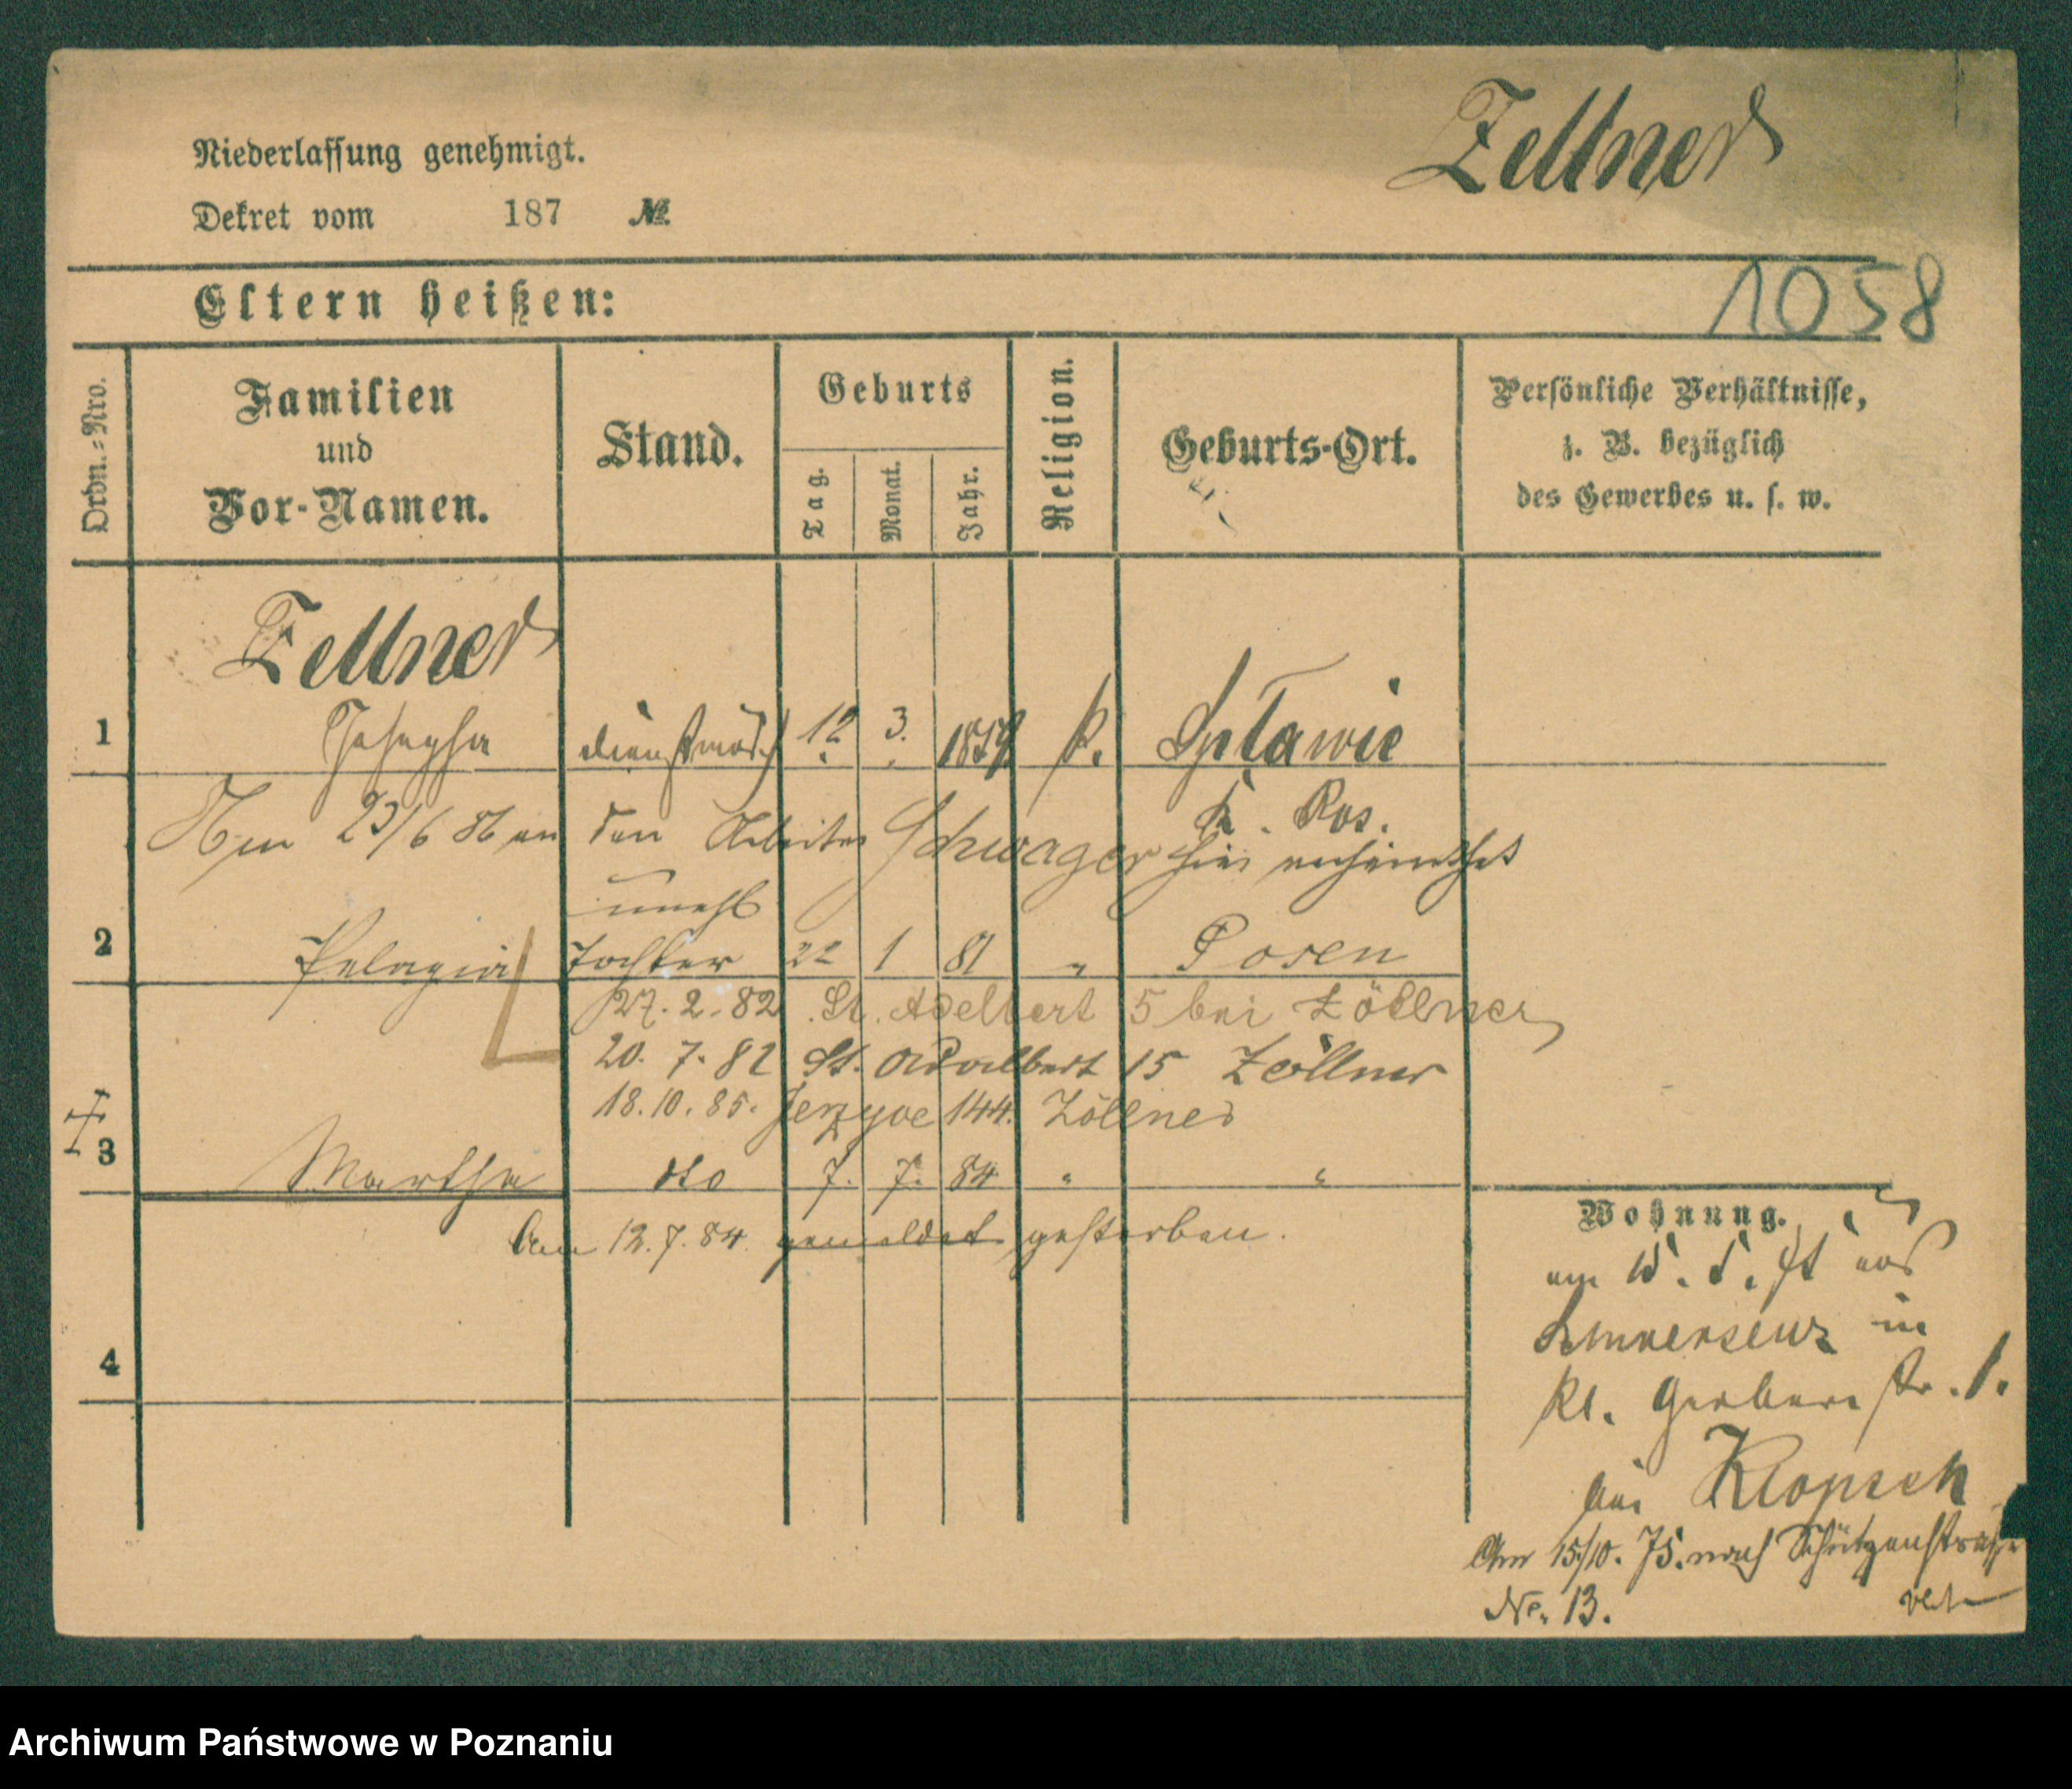 Zellner
Niederlassung genehmigt.
Dekret vom 187 №
1058
Eltern heißen:
Ordn.=Nro.
Familien
und
Vor-Namen.
Stand.
Geburts
Tag.
Monat.
Jahr.
Religion.
Geburts-Ort.
Persönliche Verhältnisse,
z. B. bezüglich
des Gewerbes u. s. w.
Zellner
1 Josepha 12. 3. k. Spławie
K. Pos.
Am 23/6 86 an den Arbeiter Schwager hier verheirathet
unehl
2 Pelagia Tochter 22 1 81 " Posen
27. 2. 82 St. Adelbert 5 bei Zöllner
20. 7. 82 St. Adalbert 15 Zöllner
18. 10. 85. Jerzyce 144. Zöllner
3 Martha dto 7. 7. 84 " "
Am 12. 7. 84 gemeldet gestorben.
4
Wohnung.
in
Kl. Gerberstr. 1.
bei Klopsch
Am 15/10. 75. nach Schützenstraße
No. 13.